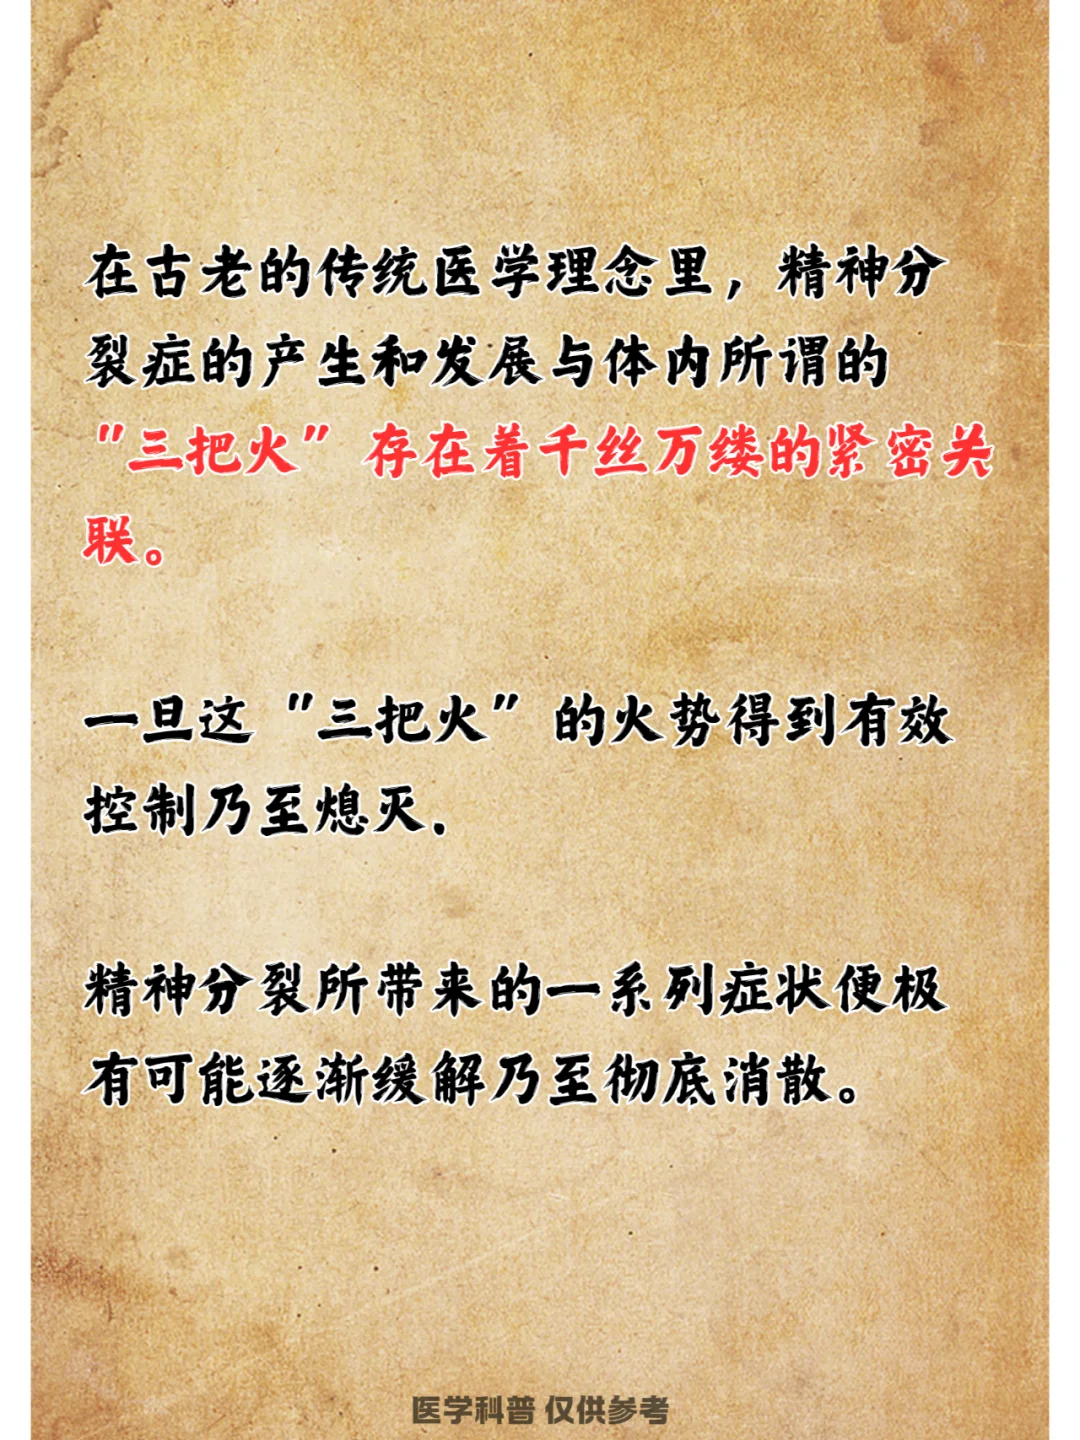 在古老的传统医学理念里，精神分
裂症的产生和发展与体内所谓的
"三把火"存在着千丝万缕的紧密关
联。
一旦这"三把火"的火势得到有效
控制乃至熄灭.
精神分裂所带来的一系列症状便极
有可能逐渐缓解乃至彻底消散。
医学科普 仅供参考